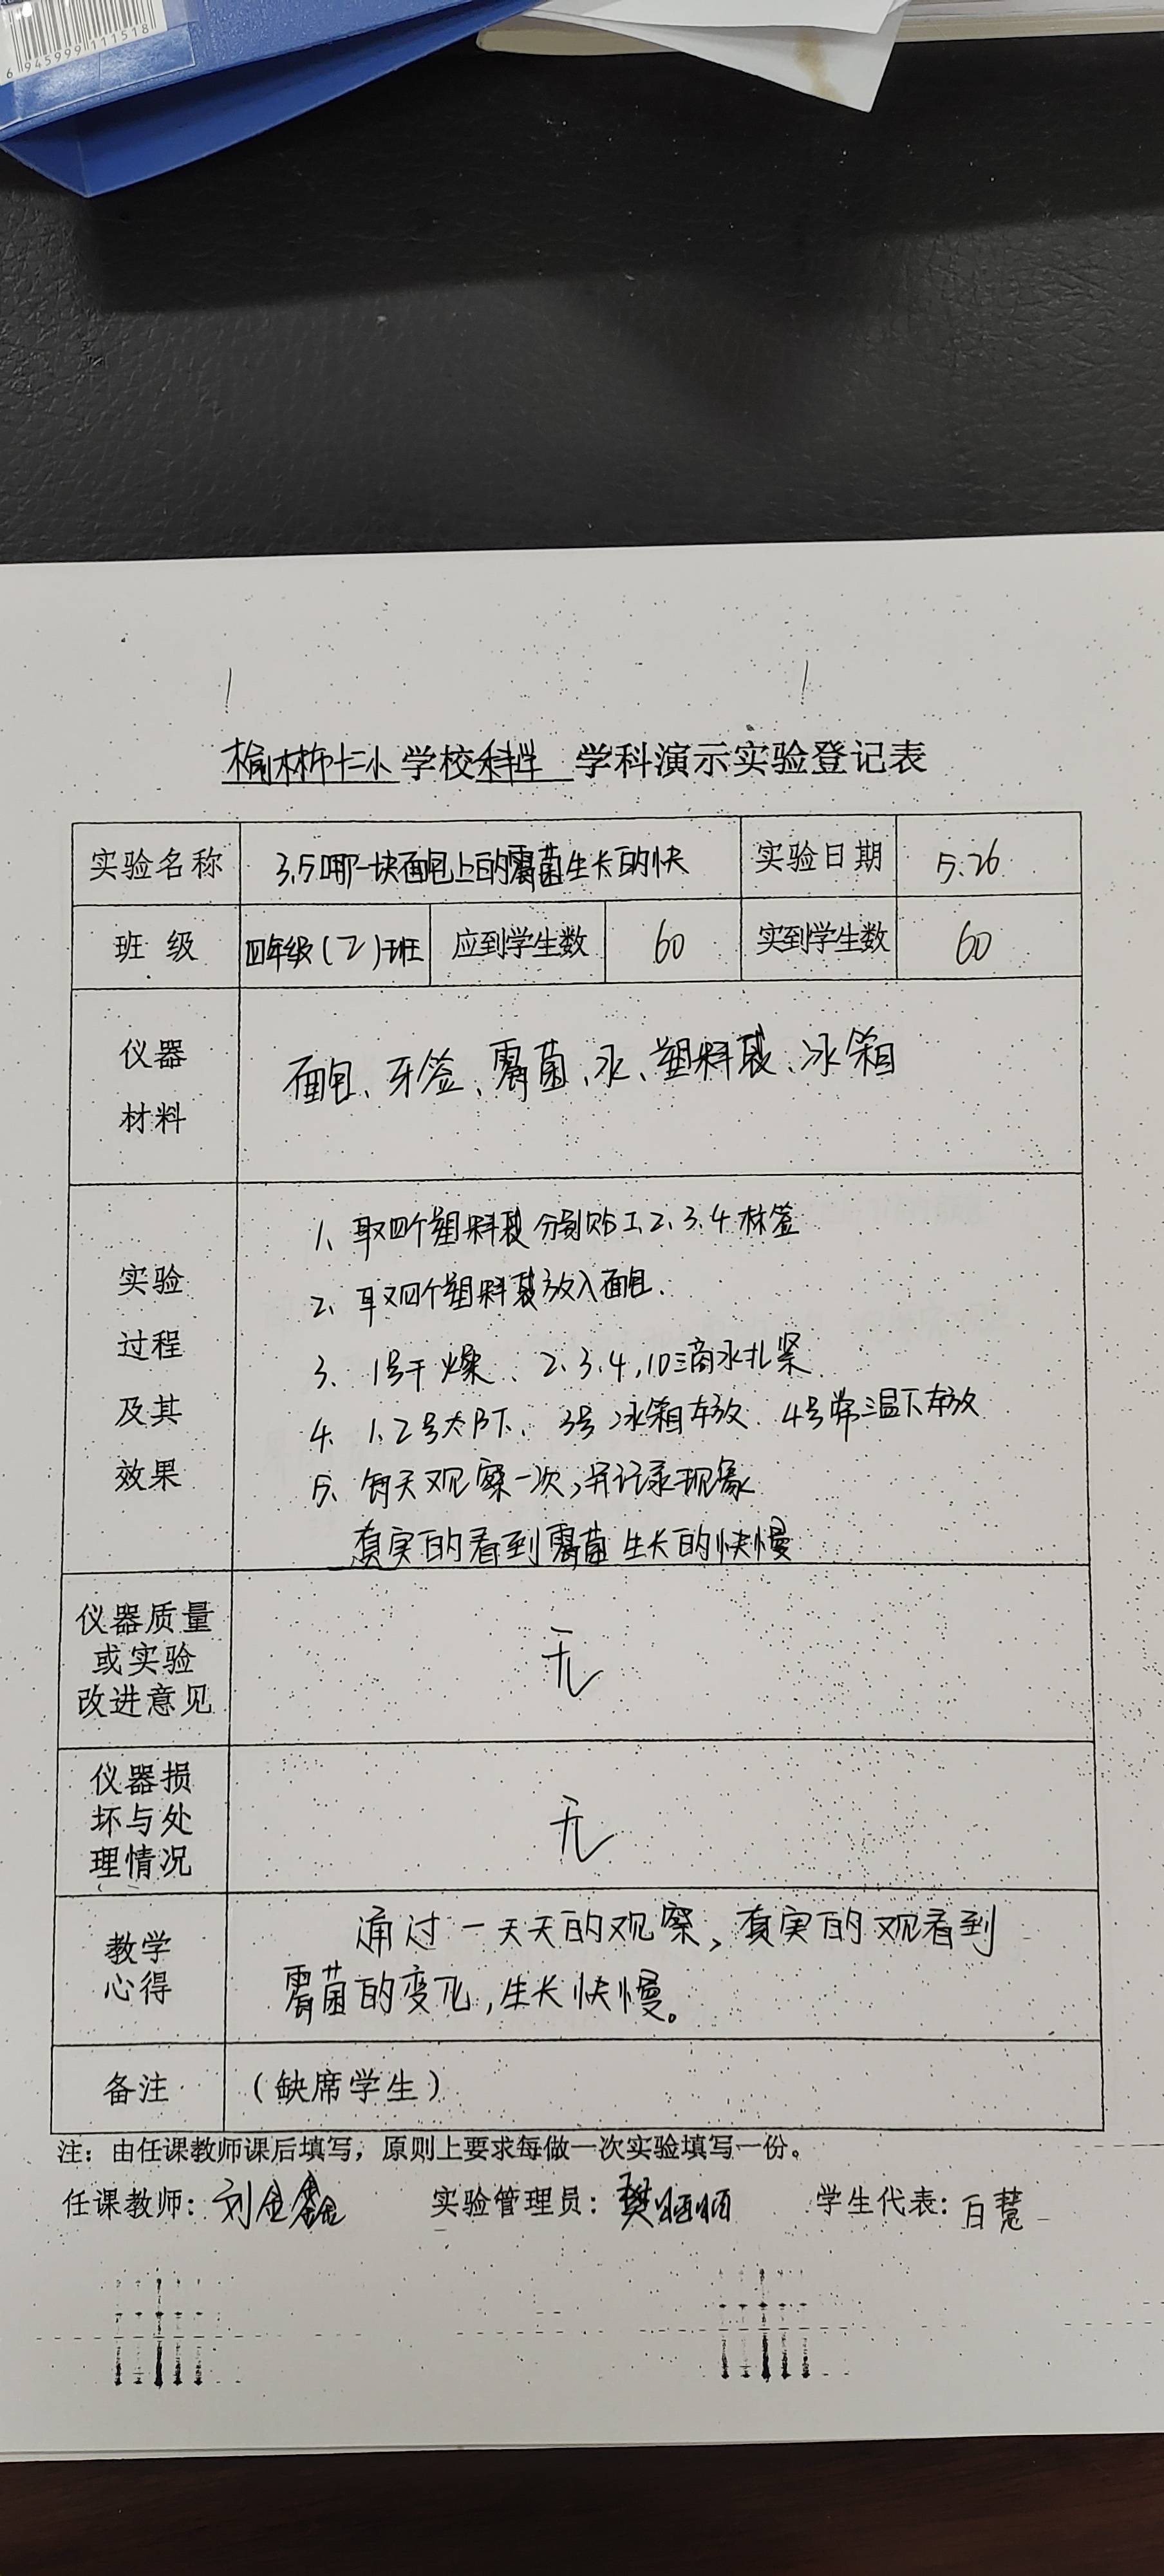 6 945999 111518
榆林市十二小学校科学 学科演示实验登记表
实验名称 3.5哪一块面包上的霉菌生长的快 实验日期 5.26
班 级 四年级(2)班 应到学生数 60 实到学生数 60
仪器
材料
面包、牙签、霉菌、水、塑料袋、冰箱
实验
过程
及其
效果
1、取四个塑料袋分别贴1、2、3、4标签
2、取四个塑料袋放入面包.
3、1号干燥、2.3.4,10滴水扎紧
4、1、2号太阳下、3号冰箱存放、4号常温下存放
5、每天观察一次,并记录现象
真实的看到霉菌生长的快慢
仪器质量
或实验
改进意见
无
仪器损
坏与处
理情况
无
教学
心得
通过一天天的观察,真实的观看到
霉菌的变化,生长快慢。
备注 (缺席学生)
注:由任课教师课后填写,原则上要求每做一次实验填写一份。
任课教师: 刘金鑫 实验管理员: 樊 学生代表: 白慧